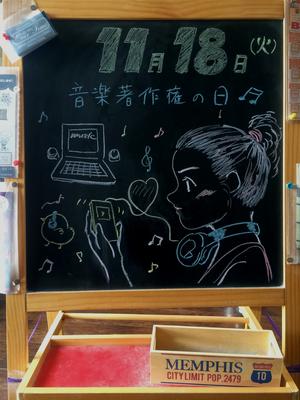 11月18日(火)
音楽著作権の日
music
MEMPHIS
CITY LIMIT POP. 2479
10